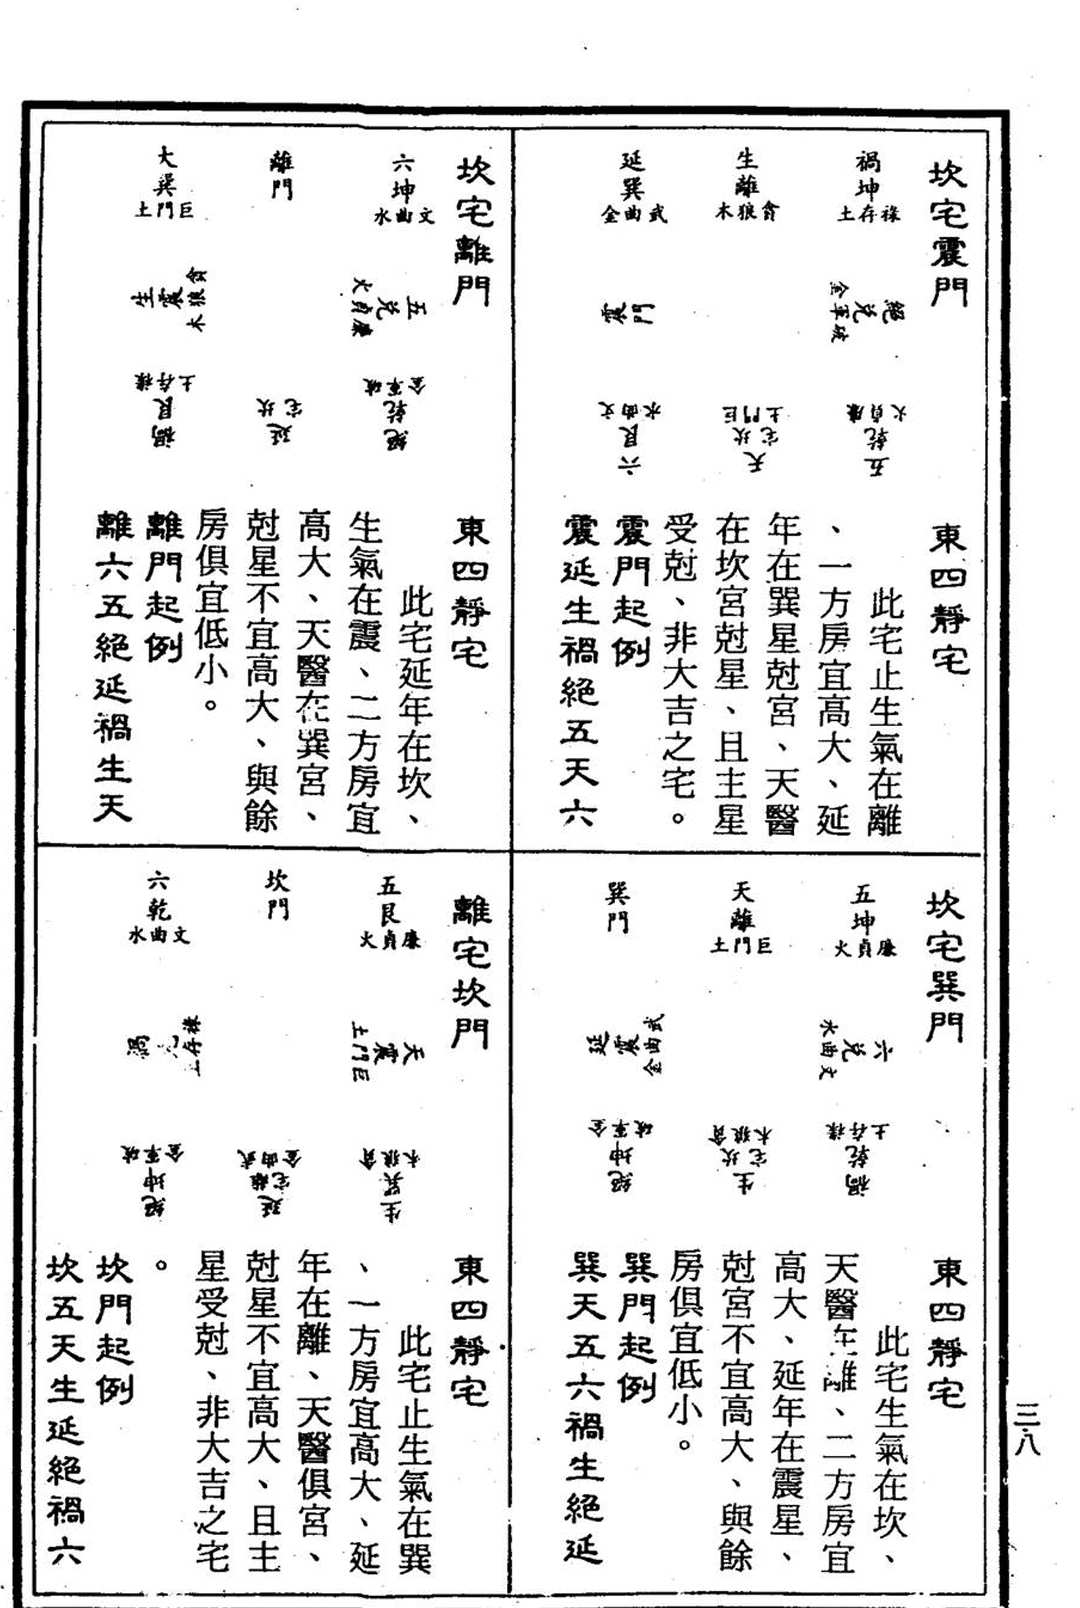 坎宅震門
禍坤
祿存土
生離
貪狼木
延巽
武曲金
絕兌
破軍金
震門
五乾
廉貞火
天
宅坎
巨門土
六艮
文曲水
東四靜宅
此宅止生氣在離
、一方房宜高大、延
年在巽星尅宮、天醫
在坎宮尅星、且主星
受尅、非大吉之宅。
震門起例
震延生禍絕五天六
坎宅巽門
五坤
廉貞火
天離
巨門土
巽門
六兌
文曲水
延震
武曲金
禍乾
祿存土
生
宅坎
貪狼木
絕坤
破軍金
東四靜宅
此宅生氣在坎、
天醫在離、二方房宜
高大、延年在震星、
尅宮不宜高大、與餘
房俱宜低小。
巽門起例
巽天五六禍生絕延
坎宅離門
六坤
文曲水
離門
大巽
巨門土
五兌
廉貞火
生震
貪狼木
絕乾
破軍金
延
宅坎
禍艮
祿存土
東四靜宅
此宅延年在坎、
生氣在震、二方房宜
高大、天醫在巽宮、
尅星不宜高大、與餘
房俱宜低小。
離門起例
離六五絕延禍生天
離宅坎門
五艮
廉貞火
坎門
六乾
文曲水
天震
巨門土
禍
祿存土
生巽
貪狼木
延
宅離
武曲金
絕坤
破軍金
東四靜宅
此宅止生氣在巽
、一方房宜高大、延
年在離、天醫俱宮、
尅星不宜高大、且主
星受尅、非大吉之宅
。
坎門起例
坎五天生延絕禍六
三八